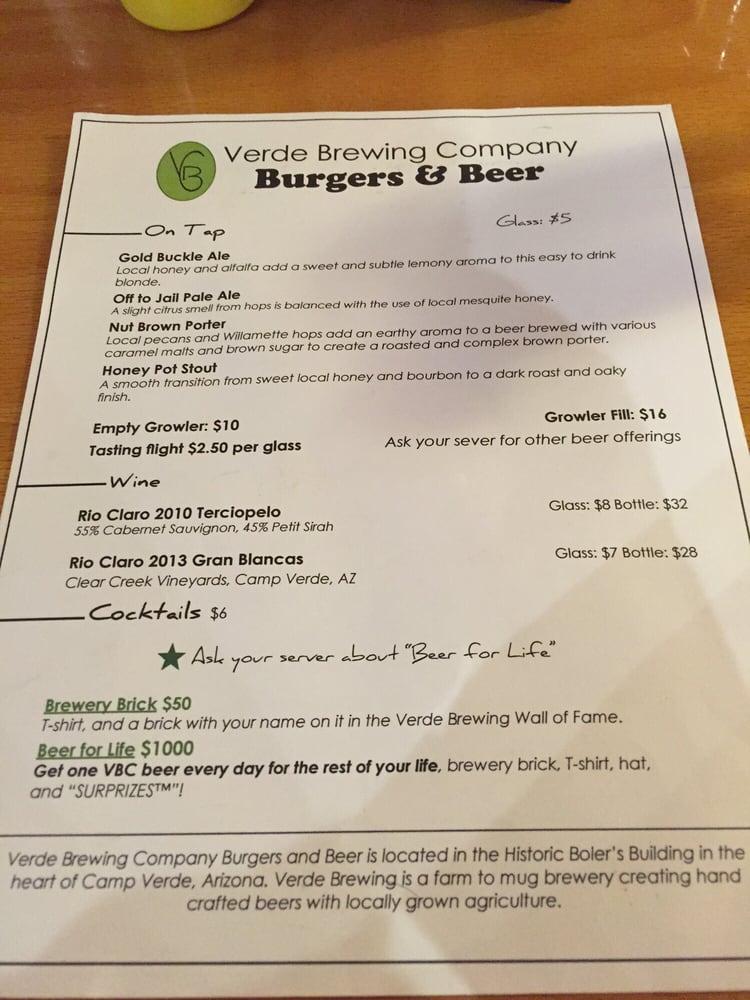 VB
Verde Brewing Company
Burgers & Beer
On Tap
Glass: $5
Gold Buckle Ale
Local honey and alfalfa add a sweet and subtle lemony aroma to this easy to drink
blonde.
Off to Jail Pale Ale
A slight citrus smell from hops is balanced with the use of local mesquite honey.
Nut Brown Porter
Local pecans and Willamette hops add an earthy aroma to a beer brewed with various
caramel malts and brown sugar to create a roasted and complex brown porter.
Honey Pot Stout
A smooth transition from sweet local honey and bourbon to a dark roast and oaky
finish.
Empty Growler: $10
Growler Fill: $16
Tasting flight $2.50 per glass
Ask your sever for other beer offerings
Wine
Rio Claro 2010 Terciopelo
Glass: $8 Bottle: $32
55% Cabernet Sauvignon, 45% Petit Sirah
Rio Claro 2013 Gran Blancas
Glass: $7 Bottle: $28
Clear Creek Vineyards, Camp Verde, AZ
Cocktails $6
★ Ask your server about "Beer for Life"
Brewery Brick $50
T-shirt, and a brick with your name on it in the Verde Brewing Wall of Fame.
Beer for Life $1000
Get one VBC beer every day for the rest of your life, brewery brick, T-shirt, hat,
and "SURPRIZES™"!
Verde Brewing Company Burgers and Beer is located in the Historic Boler's Building in the
heart of Camp Verde, Arizona. Verde Brewing is a farm to mug brewery creating hand
crafted beers with locally grown agriculture.